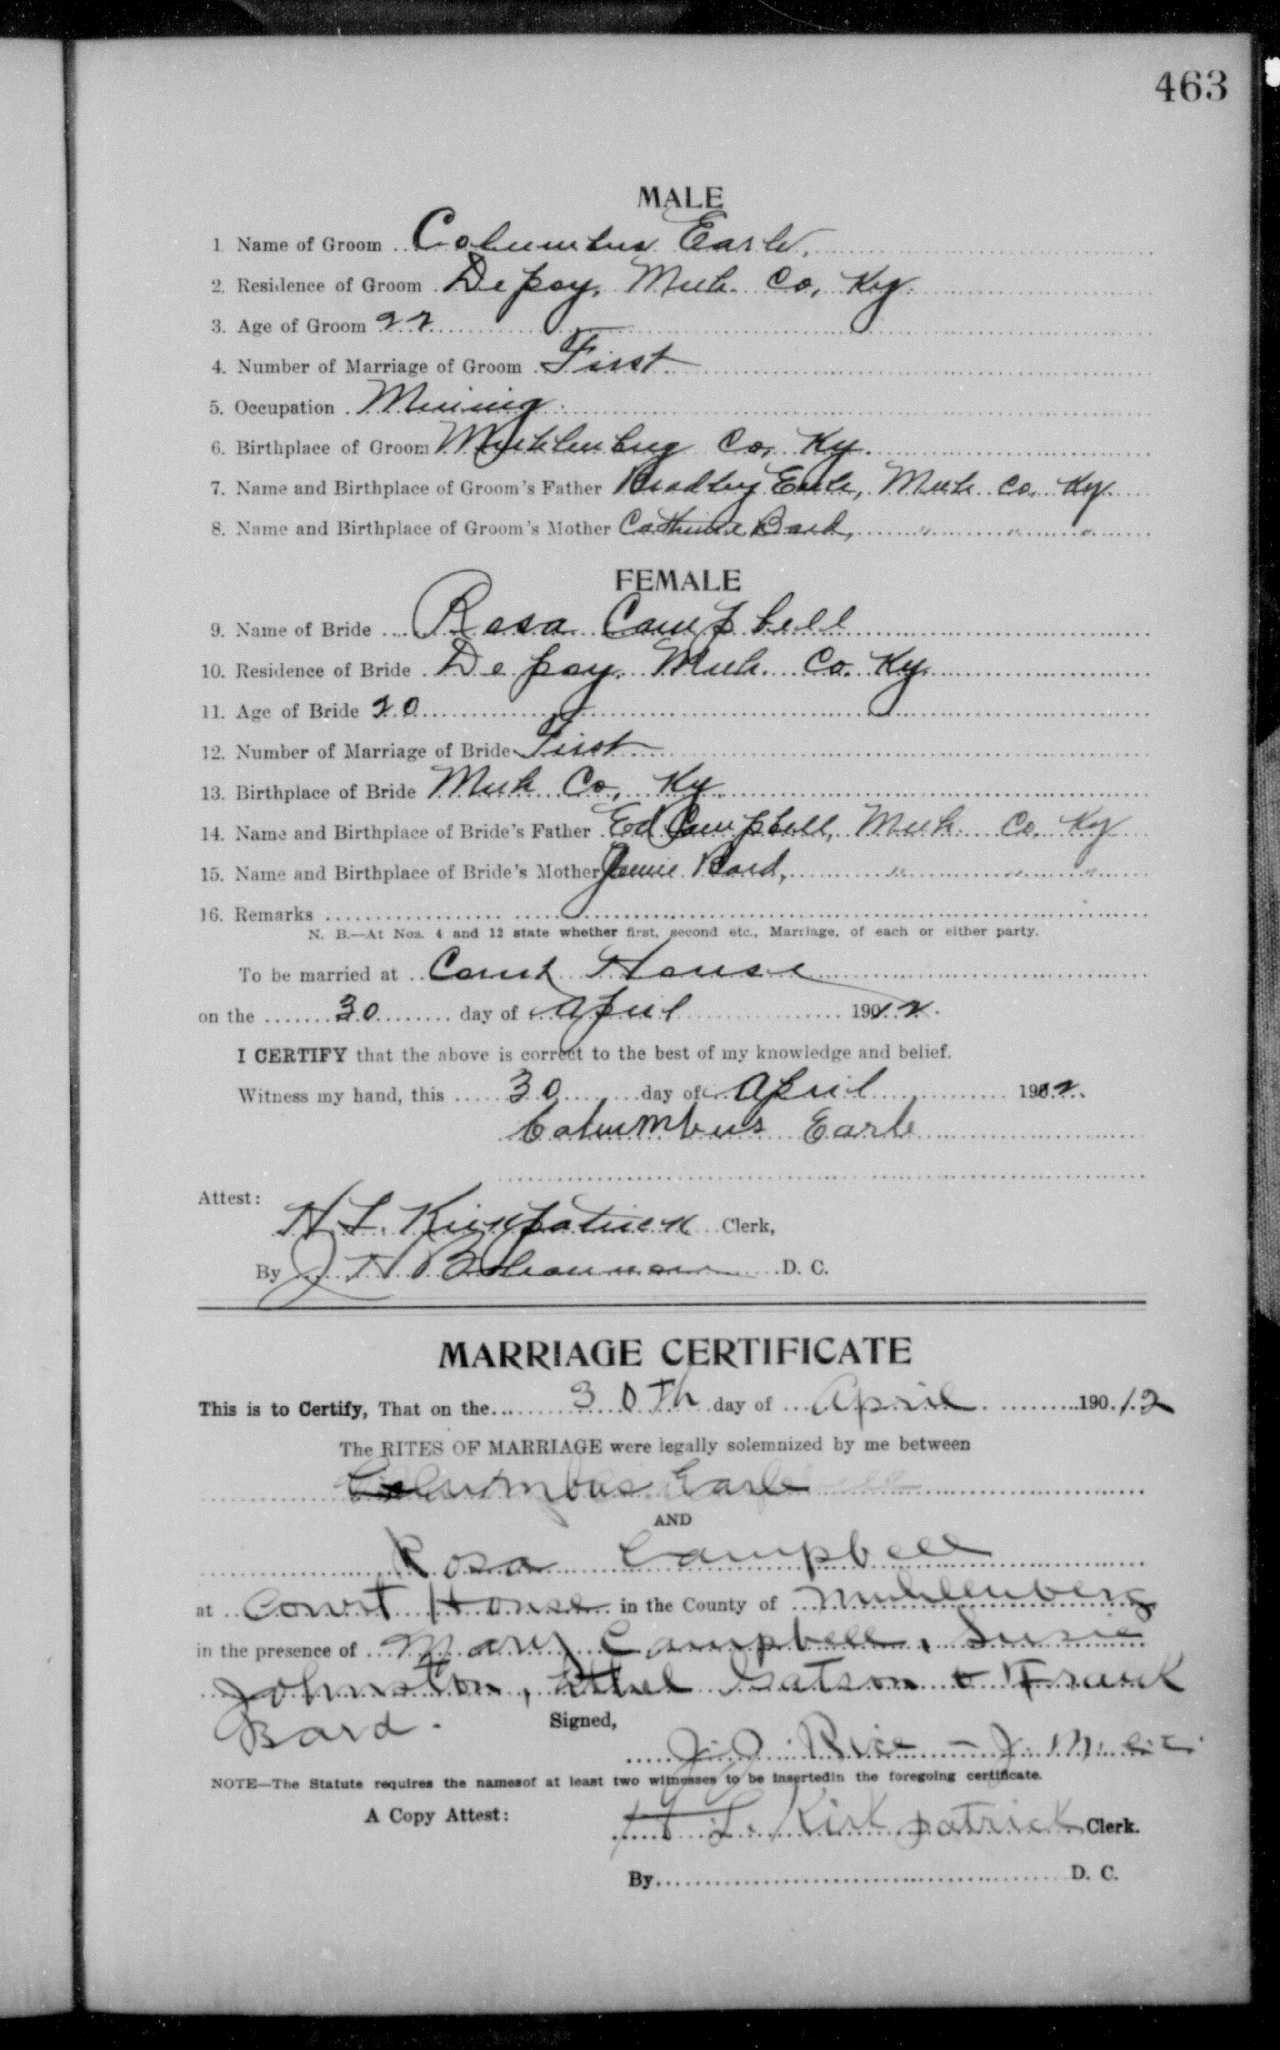 463
MALE
1 Name of Groom Columbus Earle,
2. Residence of Groom Depoy, Muh. Co, Ky.
3. Age of Groom 22
4. Number of Marriage of Groom First
5. Occupation Mining
6. Birthplace of Groom Muhlenberg Co, Ky.
7. Name and Birthplace of Groom's Father Bradley Earle, Muh. Co. Ky.
8. Name and Birthplace of Groom's Mother Catherine Bard, " " "
FEMALE
9. Name of Bride Rosa Campbell
10. Residence of Bride Depoy, Muh. Co. Ky.
11. Age of Bride 20
12. Number of Marriage of Bride First
13. Birthplace of Bride Muh Co, Ky.
14. Name and Birthplace of Bride's Father Ed Campbell, Muh. Co. Ky
15. Name and Birthplace of Bride's Mother Jennie Bard, " " "
16. Remarks
N. B.—At Nos. 4 and 12 state whether first, second etc., Marriage, of each or either party.
To be married at Court House
on the 30 day of April 1912.
I CERTIFY that the above is correct to the best of my knowledge and belief.
Witness my hand, this 30 day of April 1912.
Columbus Earle
Attest:
H. L. Kirkpatrick Clerk,
By J H Bohannon D. C.
MARRIAGE CERTIFICATE
This is to Certify, That on the 30th day of April 190 12
The RITES OF MARRIAGE were legally solemnized by me between
Columbus Earle
AND
Rosa Campbell
at Court House in the County of Muhlenberg
in the presence of Mary Campbell, Susie
Johnston, Ethel Gatson & Frank
Bard.
Signed,
J. J. Rice - J. M. C. C.
NOTE—The Statute requires the namesof at least two witnesses to be insertedin the foregoing certificate.
A Copy Attest:
H L. Kirkpatrick Clerk.
By D. C.